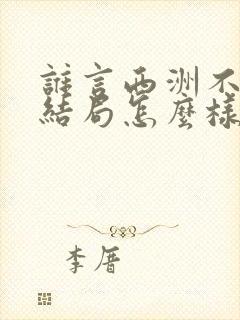 誰言西洲不
結局怎麼樣
李厝